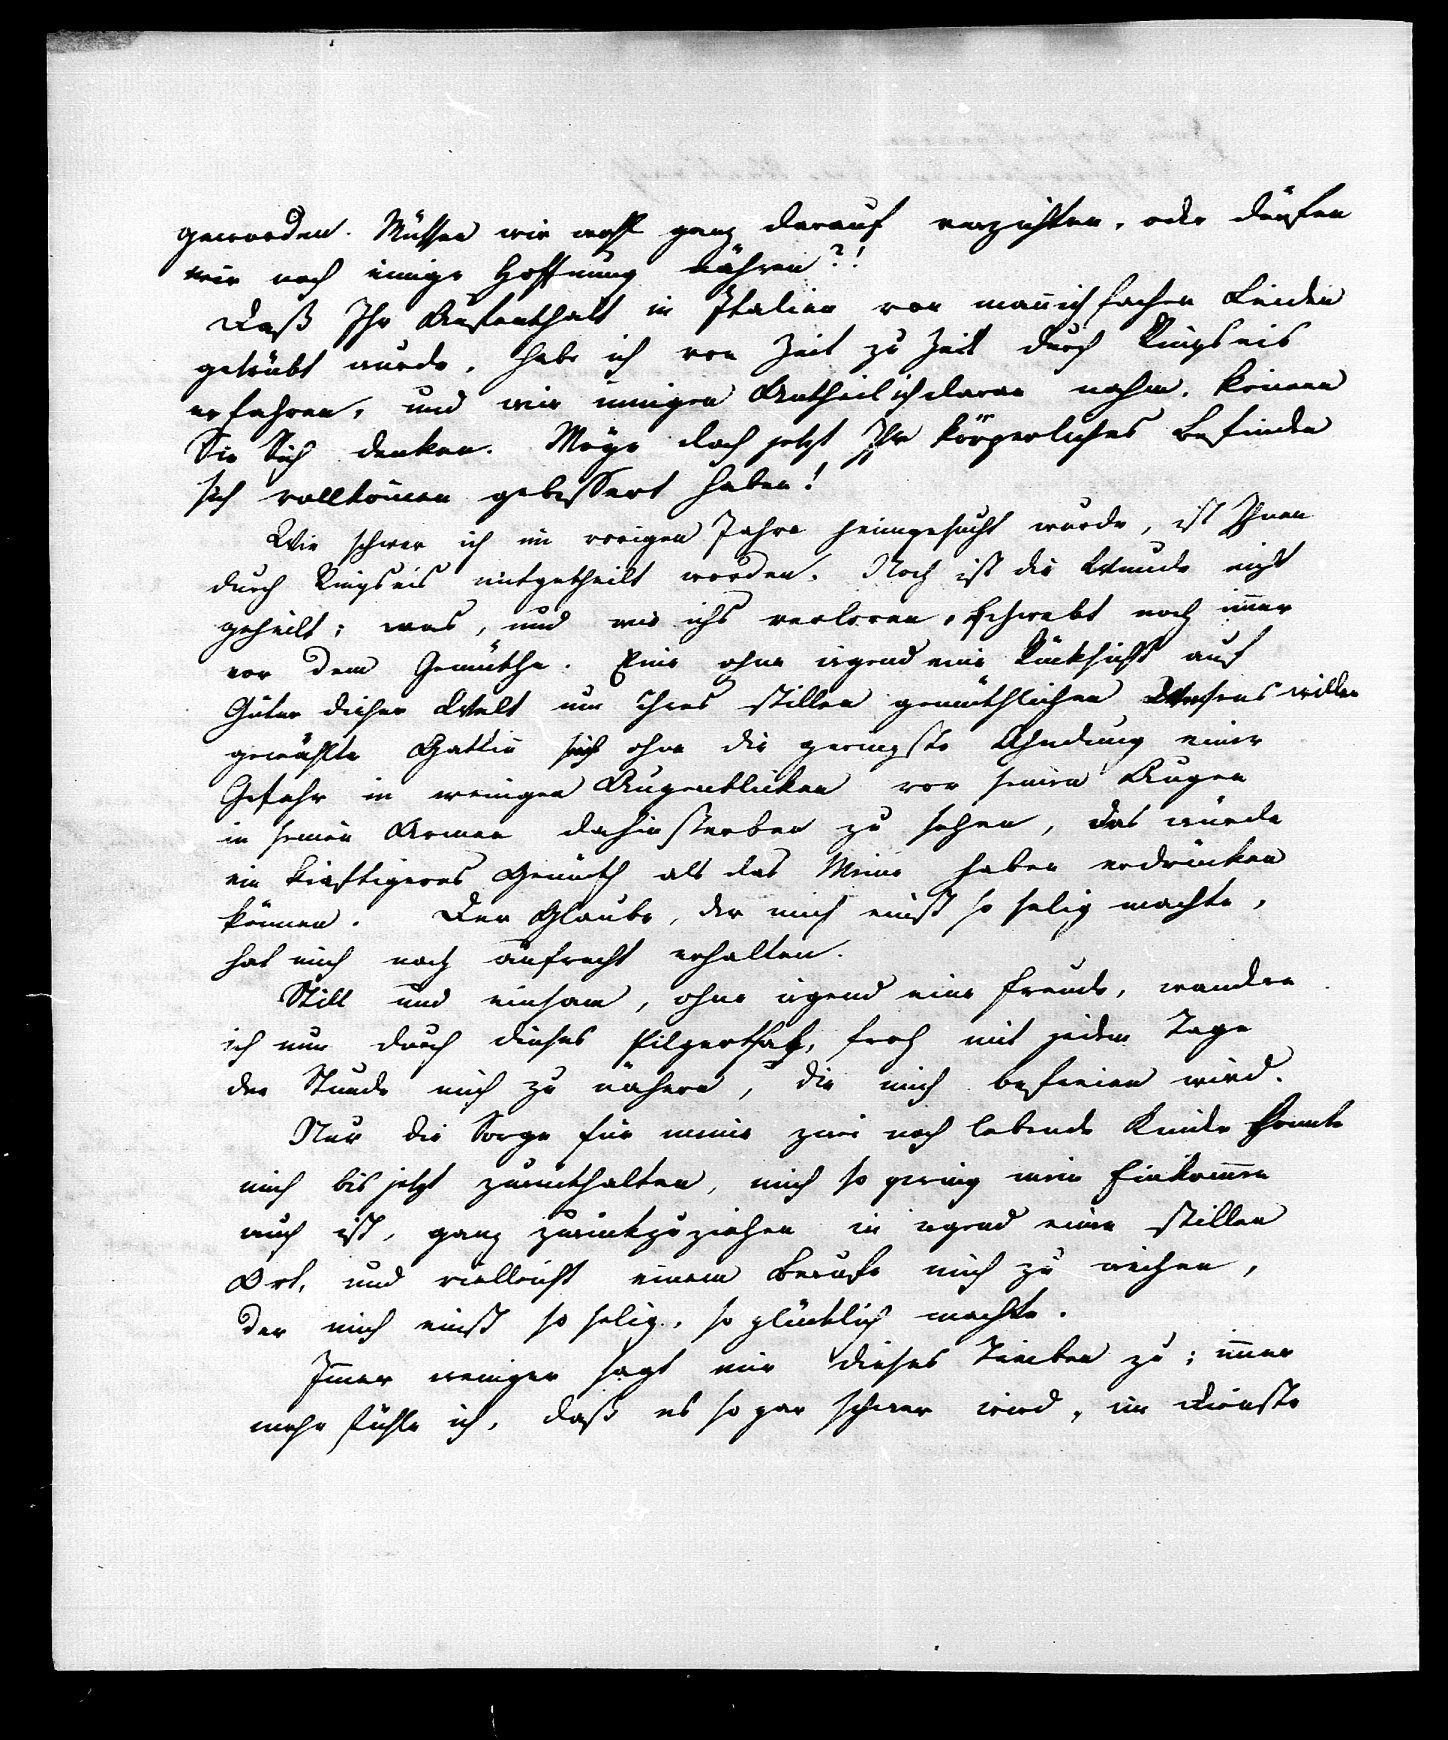 geworden. Müssen wir wohl ganz darauf verzichten, oder dürfen
wir noch einige Hoffnung nähren?!
Daß Ihr Aufenthalt in Italien von mannichfachen Leiden
getrübt wurde, habe ich von Zeit zu Zeit durch Ringseis
erfahren, und wie innigen Antheil ich daran nahm, können
Sie Sich denken. Möge doch jetzt Ihr körperliches Befinden
sich vollkom̅en gebessert haben!
Wie schwer ich im vorigen Jahre heimgesucht wurde, ist Ihnen
durch Ringseis mitgetheilt worden. Noch ist die Wunde nicht
geheilt; was, und wie ichs verloren, schwebt noch im̅er
vor dem Gemüthe. Eine ohne irgend eine Rücksicht auf
Güter dieser Welt um ihres stillen gemüthlichen Wesens willen
gewählte Gattin̅ ohne die geringste Ahndung einer
Gefahr in wenigen Augenblicken vor seinen Augen
in seinen Armen dahinsterben zu sehen, das würde
ein kräftigeres Gemüth als das Meine haben erdrücken
können. Der Glaube, der mich einst so selig machte,
hat mich noch aufrecht erhalten.
Still und einsam, ohne irgend eine Freude, wandre
ich nun durch dieses Pilgerthal, froh mit jedem Tage
der Stunde mich zu nähern, die mich befreien wird.
Nur die Sorge für meine zwei noch lebende Kinder konnte
mich bis jetzt zurückhalten, mich so gering mein Einkom̅en
auch ist, ganz zurückzuziehen in irgend einen stillen
Ort, und vielleicht einem Berufe mich zu weihen,
der mich einst so selig, so glücklich machte.
Im̅er weniger sagt mir dieses Treiben zu; im̅er
mehr fühle ich, daß es so gar schwer wird, im Dienste